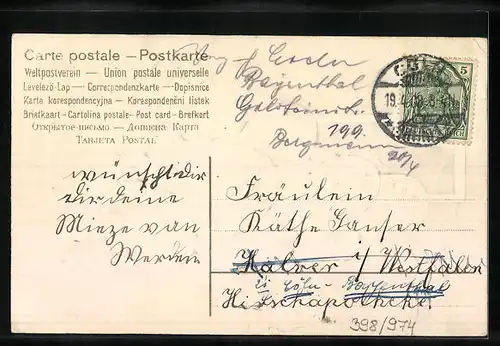 Carte postale — Postkarte
Weltpostverein — Union postale universelle
Levelező Lap — Correspondenzkarte — Dopisnice
Karta korespondencyjna — Korespondenční lístek
Briefkaart — Cartolina postale — Post card — Brefkort
Открытое письмо — Дописна Карта
TARJETA POSTAL
Bayenthal
199.
20/4
CÖLN
19.4
5
wünscht dir
dir deine
Mieze van
Werden
Fräulein
Käthe Ganser
Halver i/ Westfalen
Cöln - Bayenthal
Hirschapotheke
398/974